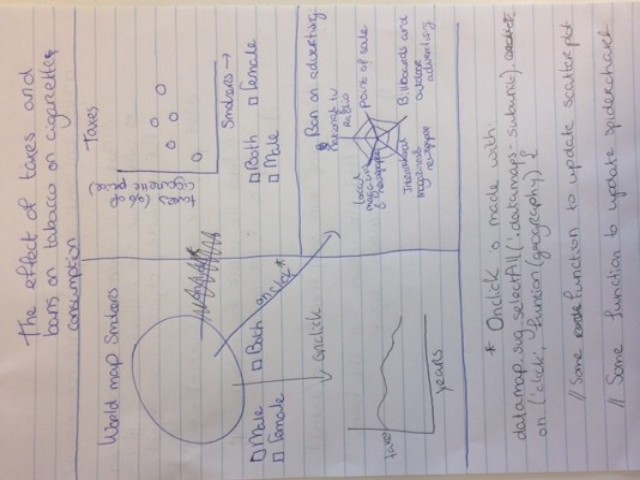 The effect of taxes and
bans on tobacco on cigarettes
consumption
World map Smokers
Male
Both
Female
onclick*
onclick
taxes
years
Taxes
taxes (% of
cigarette price)
Smokers →
Both
Female
Male
Ban on advertising:
National tv
Radio
Point of sale
Billboards and
outdoor
advertising
International
magazines &
newspaper
Local
magazines
& newspaper
* Onclick is made with:
datamap.svg.selectAll('.datamaps-subunit').
on ('click', function(geography) {
// Some function to update scatterplot
// Some function to update spiderchart